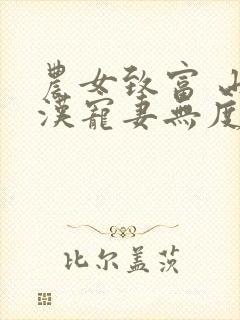 農女致富 山
漢寵妻無度
比尔盖茨